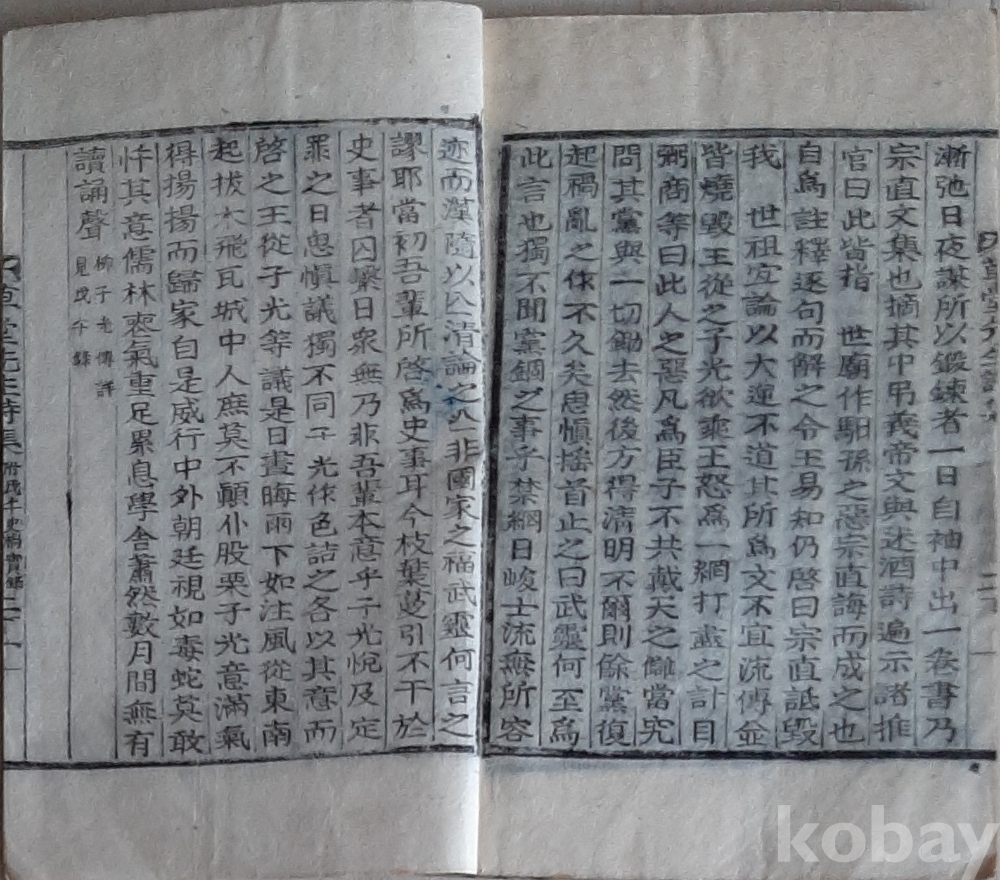 漸弛日夜謀所以鍛鍊者一日自袖中出一卷書乃
宗直文集也摘其中弔義帝文與述酒詩遍示諸推
官曰此皆指　世廟作馹孫之惡宗直誨而成之也
自爲註釋逐句而解之令王易知仍啓曰宗直詆毀
我　世祖宜論以大逆不道其所爲文不宜流傳並
皆燒毀王從之子光欲乘王怒爲一網打盡之計目
弼商等曰此人之惡凡爲臣子不共戴天之讎當究
問其黨與一切鋤去然後方得清明不爾則餘黨復
起禍亂之作不久矣思愼搖首止之曰武靈何至爲
此言也獨不聞黨錮之事乎禁網日峻士流無所容
迹而漢隨以亡清論之亡非國家之福武靈何言之
謬耶當初吾輩所啓爲史事耳今枝葉蔓引不干於
史事者囚繫日衆無乃非吾輩本意乎子光悅及定
罪之日思愼議獨不同子光作色詰之各以其意而
啓之王從子光等議是日晝晦雨下如注風從東南
起拔木飛瓦城中人庶莫不顚仆股栗子光意滿氣
得揚揚而歸家自是威行中外朝廷視如毒蛇莫敢
忤其意儒林喪氣重足累息學舍蕭然數月間無有
讀誦聲
柳子光傳詳
見戊午錄
堂先生詩集 附戊午史禍實錄
kobay